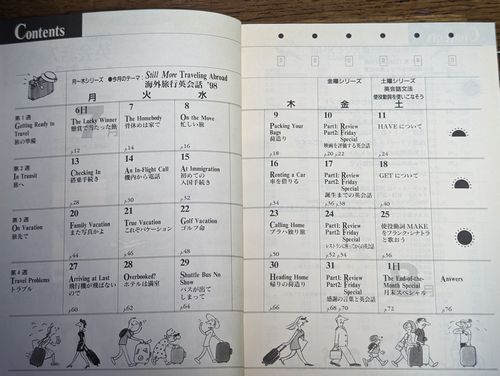 Contents
月−木シリーズ ●今月のテーマ: Still More Traveling Abroad
海外旅行英会話 '98
月 火 水
第1週
Getting Ready to
Travel
旅の準備
6日
The Lucky Winner
懸賞で当たった旅
p.12
7
The Homebody
骨休めは家で
p.14
8
On the Move
忙しい旅
p.16
第2週
In Transit
旅へ
13
Checking In
搭乗手続き
p.28
14
An In-Flight Call
機内から電話
p.30
15
At Immigration
初めての
入国手続き
p.32
第3週
On Vacation
旅先で
20
Family Vacation
また写真かよ
p.44
21
True Vacation
これぞバケーション
p.46
22
Golf Vacation
ゴルフ命
p.48
第4週
Travel Problems
トラブル
27
Arriving at Last
飛行機が飛ばない
ので
p.60
28
Overbooked?
ホテルは満室
p.62
29
Shuttle Bus No
Show
バスが出て
しまって
p.64
金曜シリーズ
土曜シリーズ
英会話文法
使役動詞を使いこなそう
木 金 土
9
Packing Your
Bags
荷造り
p.18
10
Part1: Review
Part2: Friday
Special
映画を評価する英会話
p.20 p.22
11
HAVEについて
p.24
16
Renting a Car
車を借りる
p.34
17
Part1: Review
Part2: Friday
Special
誕生までの英会話
p.36 p.38
18
GETについて
p.40
23
Calling Home
ブラハ独り旅
p.50
24
Part1: Review
Part2: Friday
Special
レストランに座ってからの英会話
p.52 p.54
25
使役動詞MAKE
をフランク・シナトラ
と歌おう
p.56
30
Heading Home
帰りの荷造り
p.66
31
Part1: Review
Part2: Friday
Special
感謝の言葉と英会話
p.68 p.70
1日
The End-of-the-
Month Special
月末スペシャル
p.72
Answers
p.76